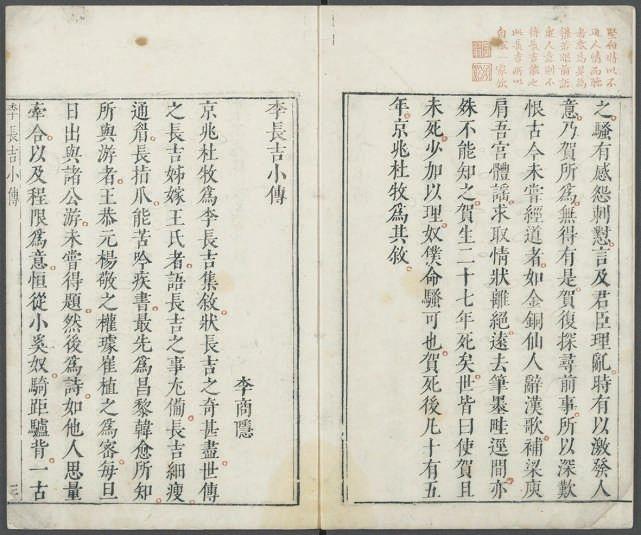 之騷有感怨刺懟言及君臣理亂時有以激發人
意乃賀所爲無得有是賀復探尋前事所以深歎
恨古今未嘗經道者如金銅仙人辭漢歌補梁庾
肩吾宮體謠求取情狀離絕遠去筆墨畦逕間亦
殊不能知之賀生二十七年死矣世皆曰使賀且
未死少加以理奴僕命騷可也賀死後凡十有五
年京兆杜牧爲其敘
李長吉小傳
李商隱
京兆杜牧爲李長吉集敘狀長吉之奇甚盡世傳
之長吉姊嫁王氏者語長吉之事尤備長吉細瘦
通眉長指爪能苦吟疾書最先爲昌黎韓愈所知
所與游者王恭元楊敬之權璩崔植之爲審每旦
日出與諸公游未嘗得題然後爲詩如他人思量
牽合以及程限爲意恒從小奚奴騎距驢背一古
李長吉小傳
三